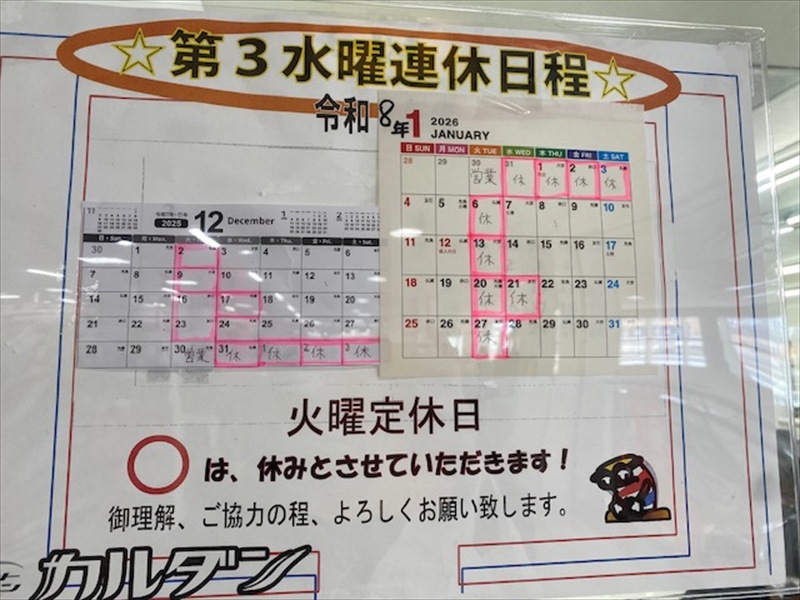 ☆第3水曜連休日程☆
令和8年
1 2026 JANUARY
日 SUN 月 MON 火 TUE 水 WED 木 THU 金 FRI 土 SAT
28 29 30 営業 31 休 1 休 2 休 3 休
4 5 6 休 7 8 9 10
11 12 13 休 14 15 16 17
18 19 20 休 21 休 22 23 24
25 26 27 休 28 29 30 31
11 2025 12 December 1 2
日・Sun. 月・Mon. 火・Tue. 水・Wed. 木・Thu. 金・Fri. 土・Sat.
30 1 2 3 4 5 6
7 8 9 10 11 12 13
14 15 16 17 18 19 20
21 22 23 24 25 26 27
28 29 30 営業 31 休 1 休 2 休 3 休
火曜定休日
○は、休みとさせていただきます!
御理解、ご協力の程、よろしくお願い致します。
カルダン